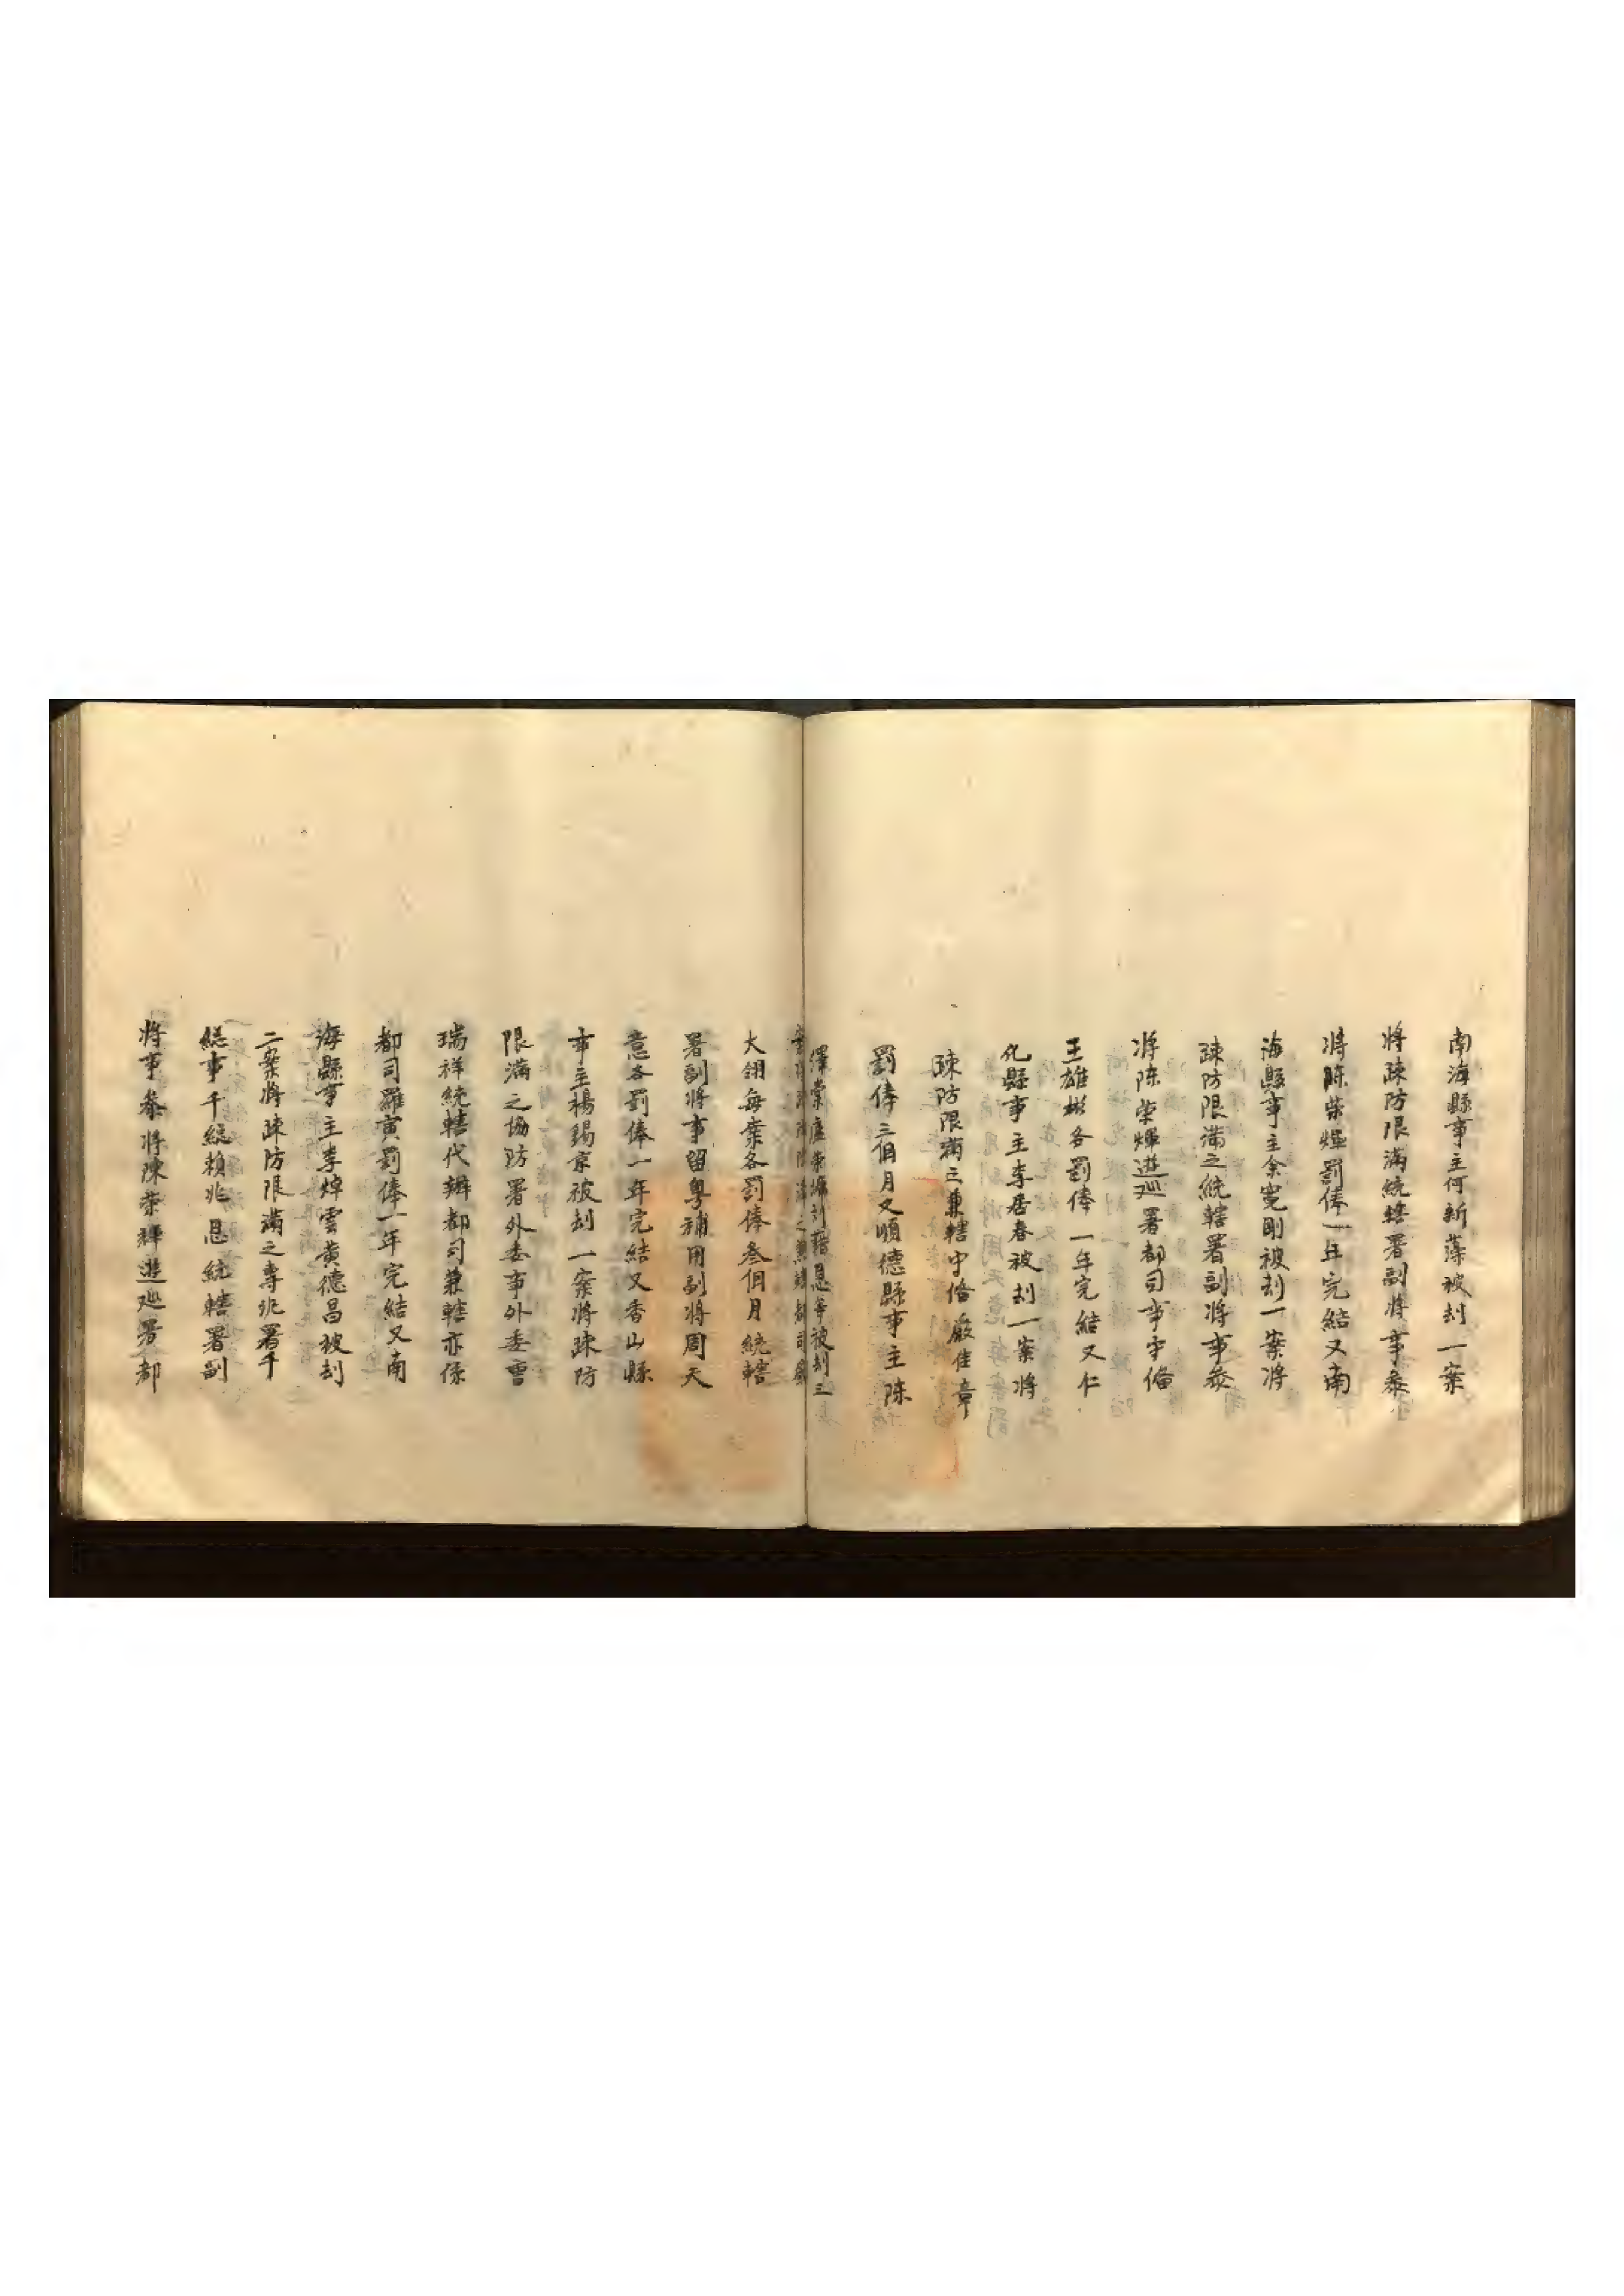 南海縣事主何新藻被刦一案
將踈防限滿統轄署副將事叅
將陈荣輝罰俸一年完結又南
海縣事主余寛剛被刦一案將
踈防限滿之統轄署副將事叅
將陈荣輝遊廵署都司事守俻
王雄彬各罰俸一年完結又仁
化縣事主李居春被刦一案將
踈防限滿之兼轄守俻嚴佳章
罰俸三個月又順德縣事主陈
澤棠盧恩等被刦三
案之都司
大翎每案各罰俸叁個月統轄
署副將事留粤補用副將周天
意各罰俸一年完結又香山縣
事主楊錫京被刦一案將踈防
限滿之協防署外委事外委曹
瑞祥統轄代辦都司兼轄亦係
都司羅寅罰俸一年完結又南
海縣事主李焯雲黄德昌被刦
二案將踈防限滿之專汛署千
総事千総賴兆恩統轄署副
將事叅將陳荣輝遊廵署都